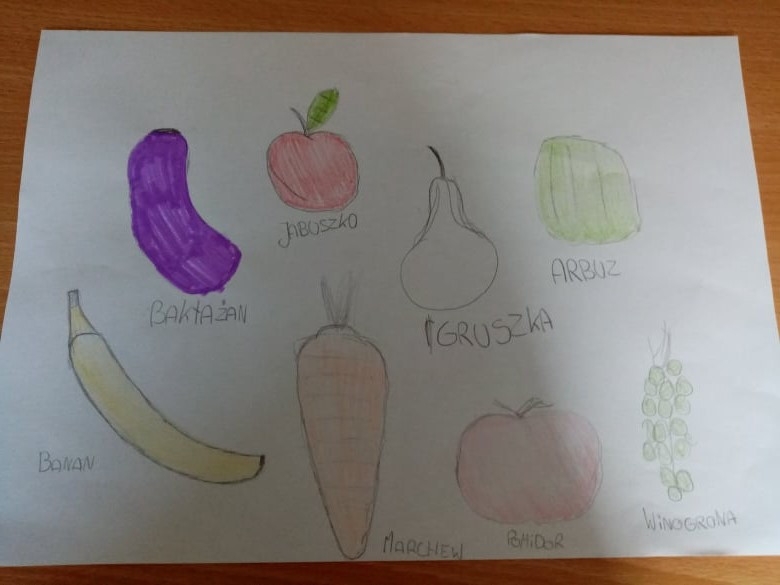 JABUSZKO
ARBUZ
BAKŁAŻAN
GRUSZKA
BANAN
MARCHEW
POMIDOR
WINOGRONA